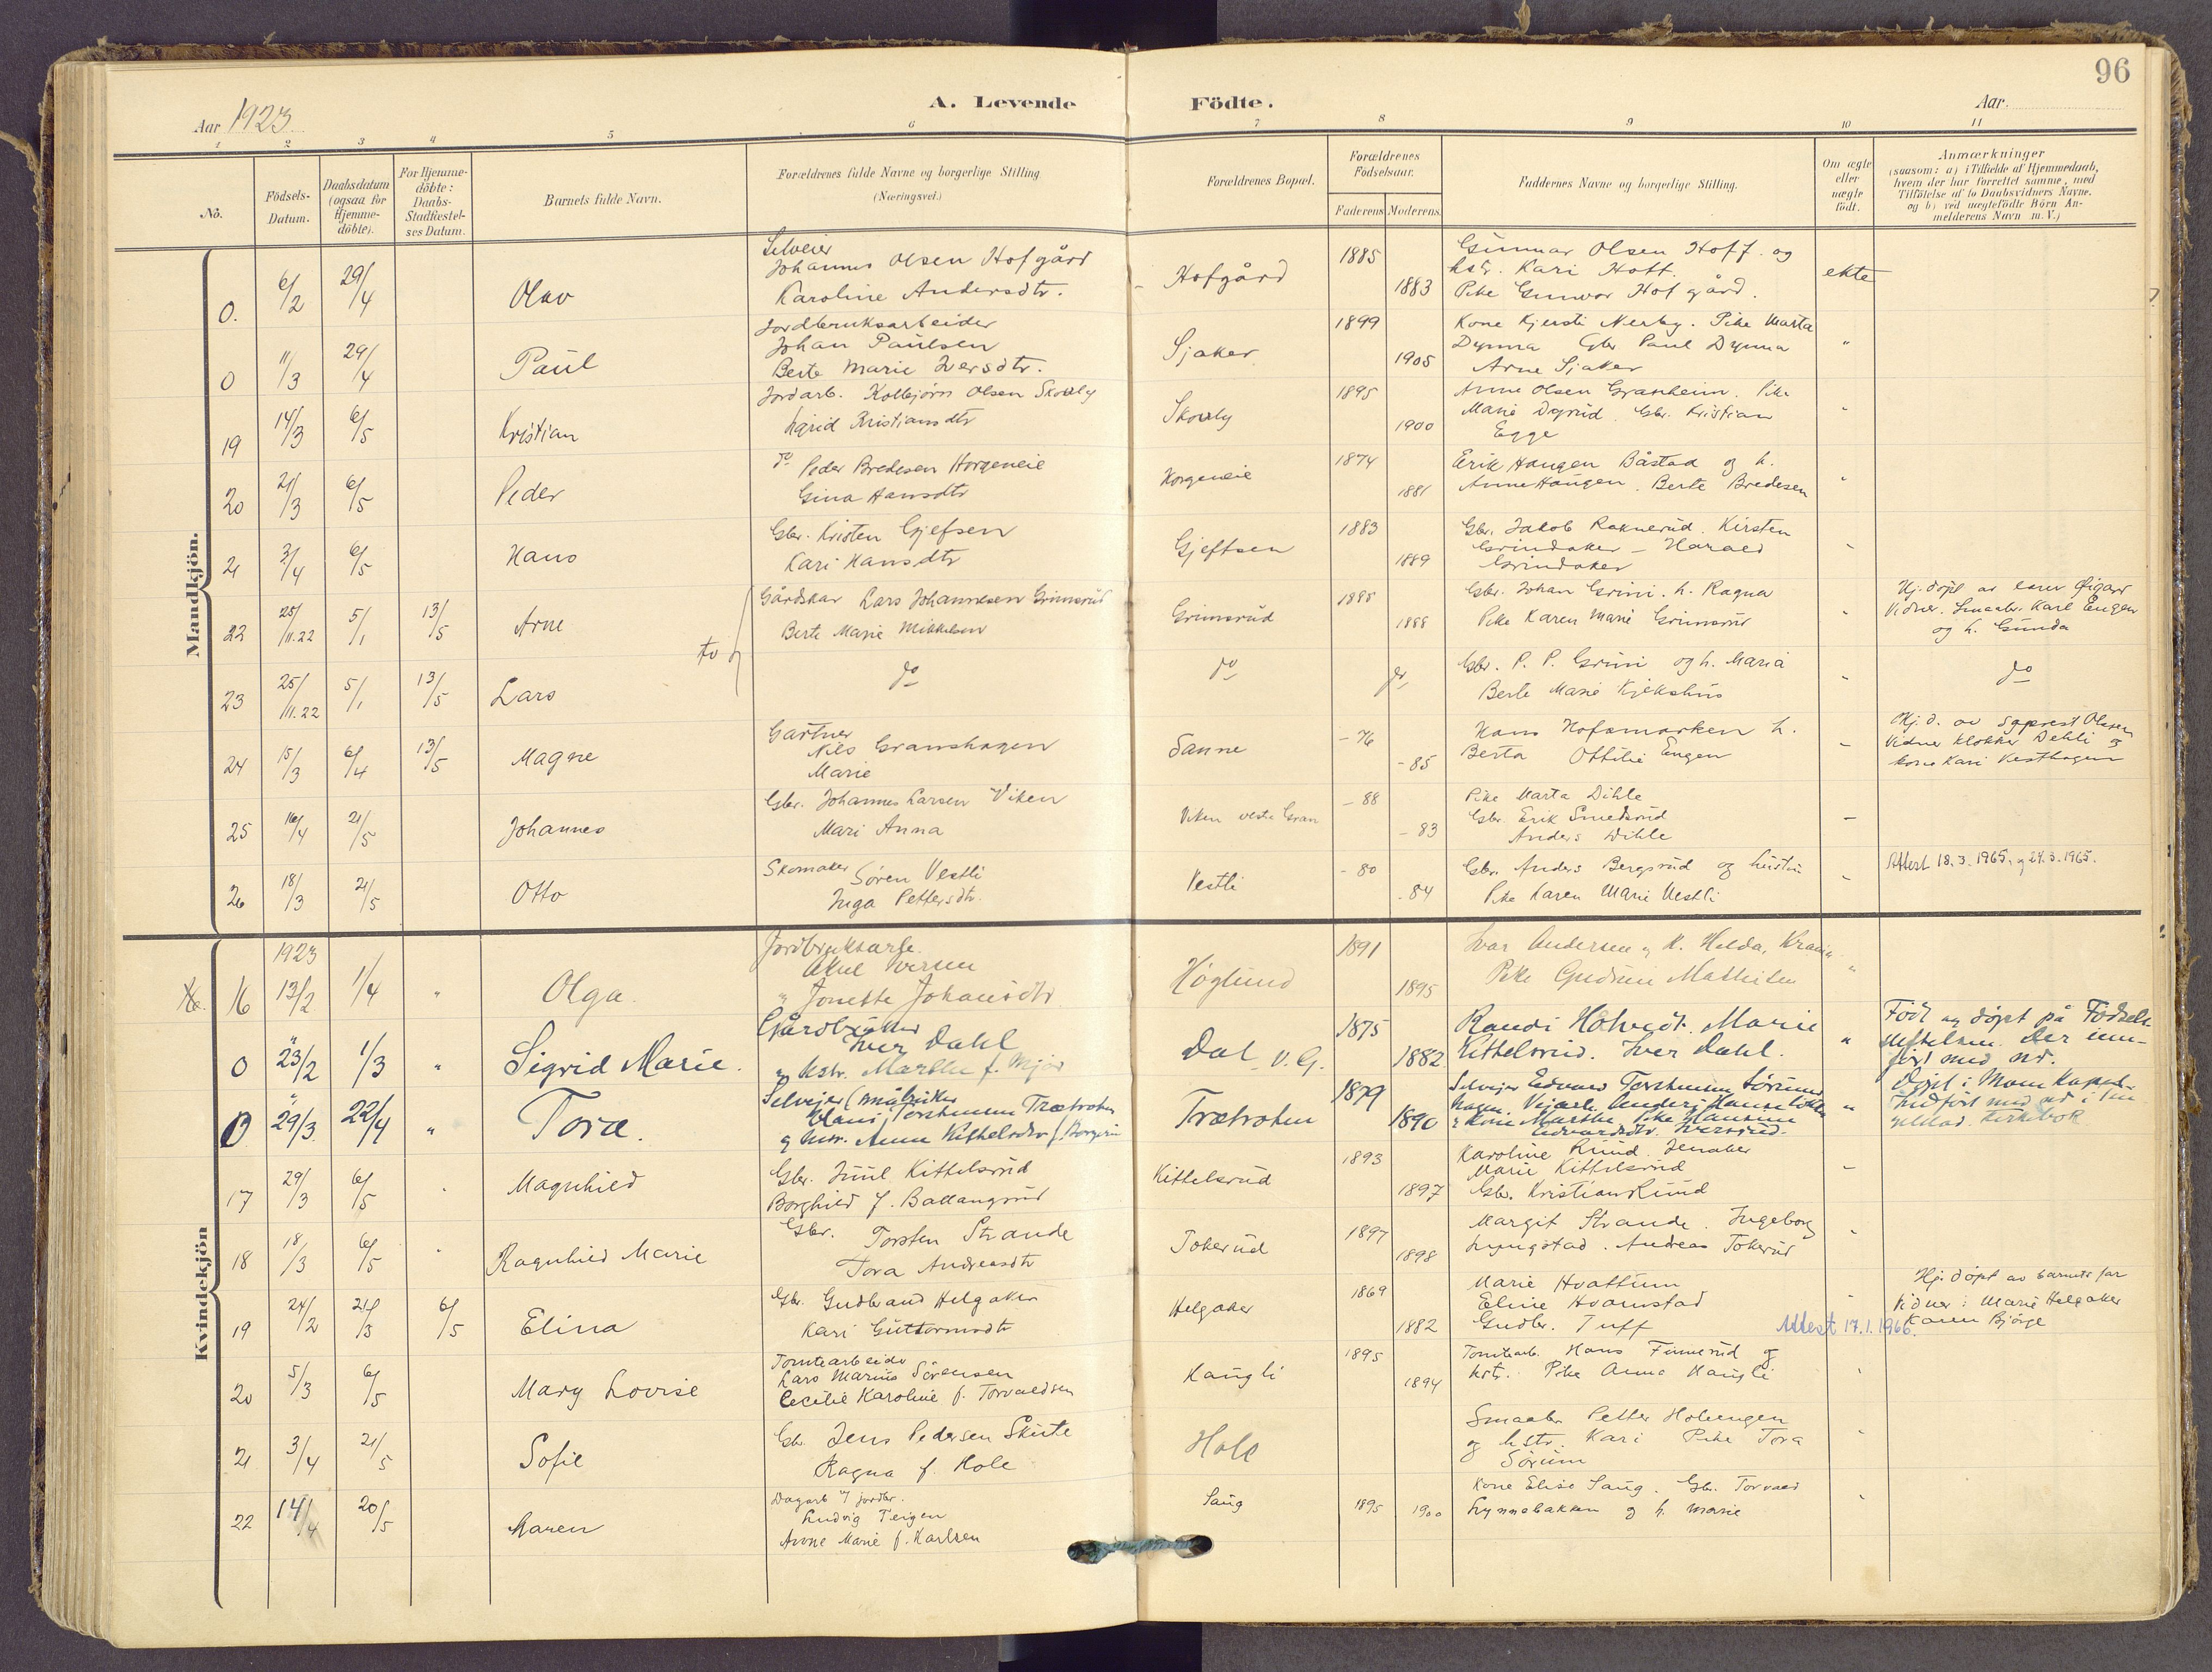 96
A. Levende Födte.
Aar 1923 Aar.
1 2 3 4 5 6 7 8 9 10 11
No. Födsels-Datum. Daabsdatum (ogsaa for Hjemme-döbte). For Hjemme-döbte: Daabs-Stadfæstel-ses Datum. Barnets fulde Navn. Forældrenes fulde Navne og borgerlige Stilling (Næringsvei.) Forældrenes Bopæl. Forældrenes Födselsaar. Faderens Moderens. Faddernes Navne og borgerlige Stilling. Om ægte eller uægte födt. Anmærkninger (saasom: a) i Tilfælde af Hjemmedaab, hvem der har forrettet samme, med Tilföielse af to Daabsvidners Navne. og b) ved uægtefödte Börn An-melderens Navn m. V.)
Mandkjön.
0. 6/2 29/4 Olav
Selveier
Johannes Olsen Hofgård
Karoline Andersdtr.
Hofgård 1885 1883
Gunnar Olsen Hoff. og
hstr. Kari Hoff.
Pike Gunvor Hofgård.
ekte
0 11/3 29/4 Paul
Jordbruksarbeider
Johan Paulsen
Berte Marie Iversdtr.
Sjaker 1899 1905
Kone Kjersti Nerby. Pike Marta
Dynna Gbr Paul Dynna
Arne Sjaker
"
19 14/3 6/5 Kristian
Jordarb. Kolbjörn Olsen Skovly
Sigrid Kristiansdtr
Skovly 1895 1900
Anne Olsen Granheim. Pike
Marie Dgrud. Gbr. Kristian
Egge
20 21/3 6/5 Peder
do Peder Bredesen Horgeneie
Gina Hansdtr
Horgeneie 1874 1881
Erik Haugen Båstad og h.
Anne Haugen. Berte Bredesen
21 3/4 6/5 Hans
Gbr. Kristen Gjefsen
Kari Hansdtr
Gjefsen 1883 1889
Gbr. Jakob Raknerud. Kirsten
Grindaker - Harald
Grindaker
22 25/11.22 5/1 13/5 Arne
Gårdskar Lars Johannesen Grimsrud
Berte Marie Mikkelsen
Grimsrud 1898 1898
Gbr. Johan Grini. h. Ragna
Pike Karen Marie Grimsrud
Hj. döpt av
Vidner. Smaabr. Karl Engen
og h. Gunda
23 25/11.22 5/1 13/5 Lars
do do do
Gbr. P. P. Grini og h. Maria
Berte Marie Kjekshus
do
24 15/3 6/4 13/5 Magne
Gartner
Nils Granshagen
Marie
Sanne - 76 - 85
Hans Hofsmarken h.
Berta Ottilie Engen
Hj. d. av sgprest Olsen
Vidner klokker Dehli og
kone Kari Vesthagen
25 16/4 21/5 Johannes
Gbr. Johannes Larsen Viken
Mari Anna
Viken vestre Gran - 88 - 83
Pike Marta Dihle
Gbr. Erik Smedsrud
Anders Dihle
26 18/3 21/5 Otto
Skomaker Sören Vestli
Inga Pettersdtr.
Vestli - 80 - 84
Gbr. Anders Bergsrud og hustru
Pike Karen Marie Vestli
Attest 18.3.1965 og 24.3.1965.
Kvindekjön
1923
16 13/2 1/4 " Olga.
Jordbruksarb.
Iversen
" Jonette Johansdtr
Höglund 1891 1895
Ivar Andersen og K. Helda,
Pike Gudrun Mathisen
"
0 23/2 1/3 " Sigrid Marie.
Gårdbruker
Iver Dahl
og hstr. Marthe f. Mjör
Dal V. G. 1875 1882
Randi Holvedt. Marie
Kittelsrud. Iver Dahl.
"
Födt og döpt på Födsels-
stiftelsen. Der inn-
fört med nr.
0 29/3. 22/4 " Tora.
Selveier (målruker
Klaus Torstensen Trætroten
og hstr. Anne Kittelsdtr f. Borgerin
Trætroten 1879 1890
Selveier Edvard Torstensen Sörum
Hagen. Veiarb. Anders Hansen
og Kone Marthe. Pike Hanna
Edvardsdtr. Iversrud.
"
Döpt i Moen Kapel
Indfört med nr i
kirkebok
17 29/3 6/5 Magnhild
Gbr. Juul Kittelsrud
Borghild f. Ballangrud
Kittelsrud 1893 1897
Karoline Ruud. Jenaker
Marie Kittelsrud
Gbr. Kristian Ruud
18 18/3 6/5 Ragnhild Marie
Gbr. Torsten Strande
Tora Andreasdtr
Tokerud 1897 1898
Margit Strande. Ingeborg
Lyngstad. Andreas Tokerud
19 24/2 21/3 6/5 Elina
Gbr. Gudbrand Helgaker
Kari Guttormsdtr
Helgaker 1869 1882
Marie Hvattum
Eline Hvamstad
Gudbr. Tuff
Hj. döpt av barnets far
Vidner: Marie Helgaker
Karen Bjørge
Attest 17.1.1966.
20 5/3 6/5 Mary Lovise
Tomtearbeider
Lars Marius Sörensen
Cecilie Karoline f. Torvaldsen
Kaugli 1895 1894
Tomtearb. Hans Finnerud og
hstr. Pike Anna Kaugli
21 3/4 21/5 Sofie
Gbr. Jens Pedersen Skute
Ragna f. Hole
Hole
Smaabr. Petter Holsengen
og hstr. Kari Pike Tora
Sörum
22 14/4 20/5 Karen
Dagarb v/ jordbr.
Ludvig Teigen
Anne Marie f. Karlsen
Saug 1895 1900
Kone Elise Saug. Gbr. Torvald
Lynnebakken og h. Marie